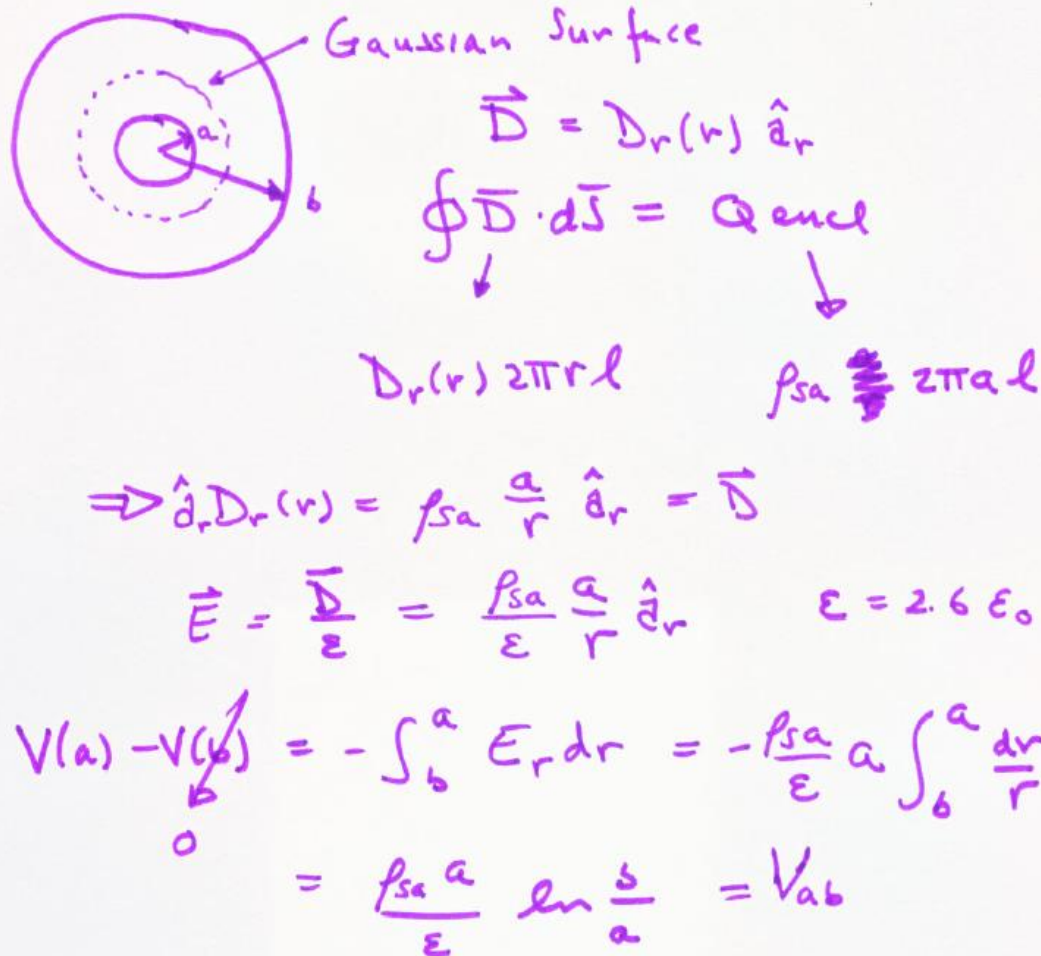 Gaussian Surface
a
b
D⃗ = Dr(r) âr
∮ D̄ · dS̄ = Q encl
Dr(r) 2πr l
ρsa 2πa l
⇒ âr Dr(r) = ρsa a/r âr = D⃗
E⃗ = D̄/ε = ρsa/ε a/r âr
ε = 2.6 ε₀
V(a) - V(b) = - ∫_b^a Er dr = - ρsa/ε a ∫_b^a dr/r
0
= ρsa a/ε ln b/a = Vab